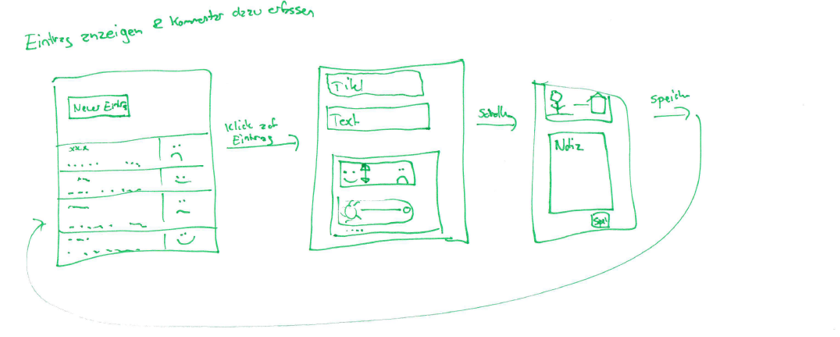 Eintrag anzeigen & Kommentar dazu erfassen
Neuer Eintrag
xx.x
Klick auf
Eintrag
Titel
Text
Scrollen
Notiz
Speichern